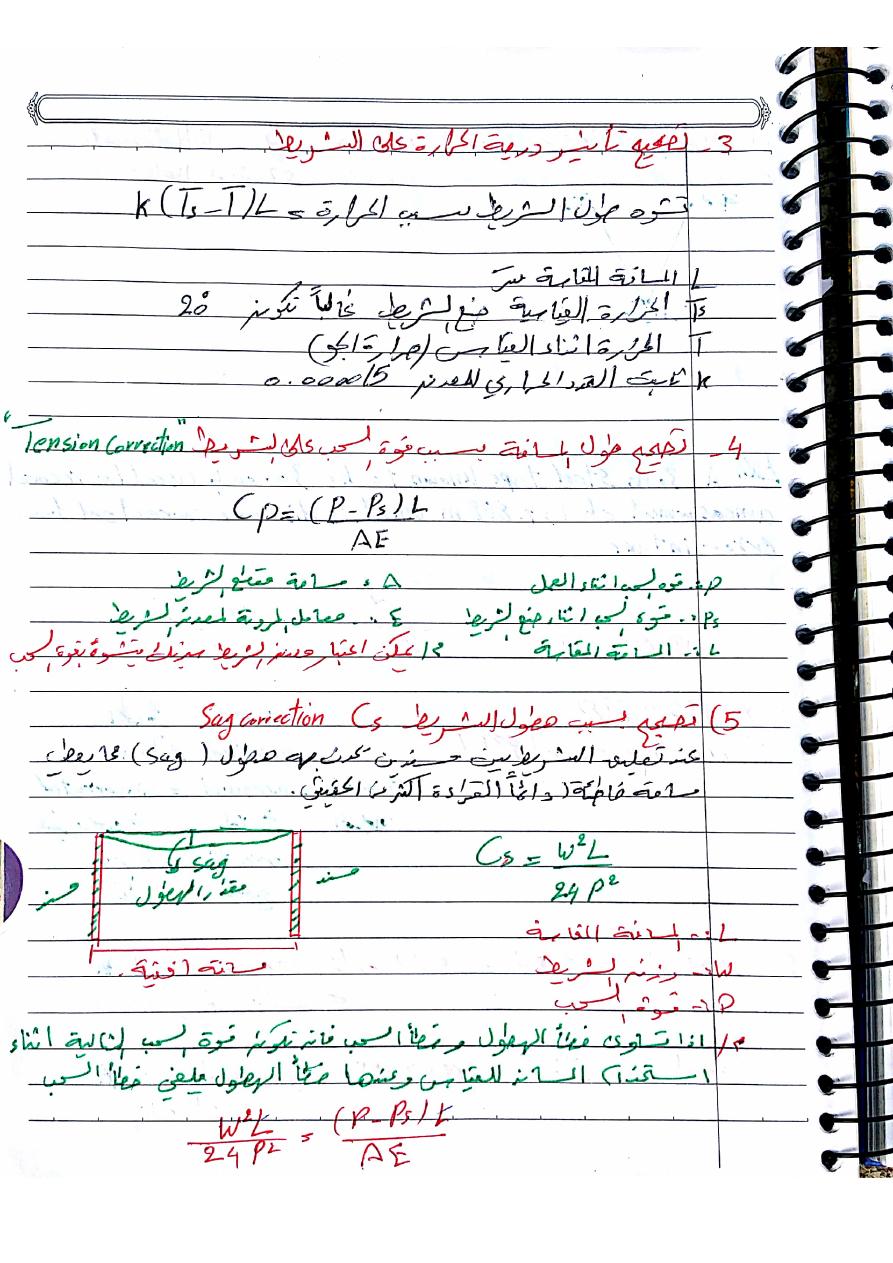 3- تصحيح تأثير درجة الحرارة على الشريط
تشوه طول الشريط بسبب الحرارة = K(Ts-T)L
L المسافة المقاسة
Ts الحرارة القياسية صنع الشريط غالباً تكون 20°
T الحرارة اثناء القياس (حرارة الجو)
K ثابت التمدد الحراري للمعدن 0.000015
4- تصحيح طول المسافة بسبب قوة السحب على الشريط "Tension Correction"
Cp = (P-Ps)L
AE
P:- قوة السحب اثناء العمل A: مساحة مقطع الشريط
Ps:- قوة السحب اثناء صنع الشريط E:- معامل المرونة لمعدن الشريط
L:- المسافة المقاسة م/ يمكن اعتبار الشريط يتشوة بقوة السحب
5) تصحيح بسبب هطول الشريط Cs Sag Correction
عند تعليق الشريط بين مسندين يحدث به هطول (Sag) مما يعطي
مسافة خاطئة (دائماً القراءة اكثر من الحقيقي).
Cs = W²L
24P²
sag
مقدار الهطول
مسند
مسند
مسافة افقية
L:- المسافة المقاسة
W:- وزن الشريط
P:- قوة السحب
م/ اذا تساوى خطأ الهطول وخطأ السحب فانه تكون قوة السحب المثالية اثناء
استخدام المساند للقياس وعندها خطأ الهطول يلغي خطأ السحب
W²L = (P-Ps)L
24P² AE